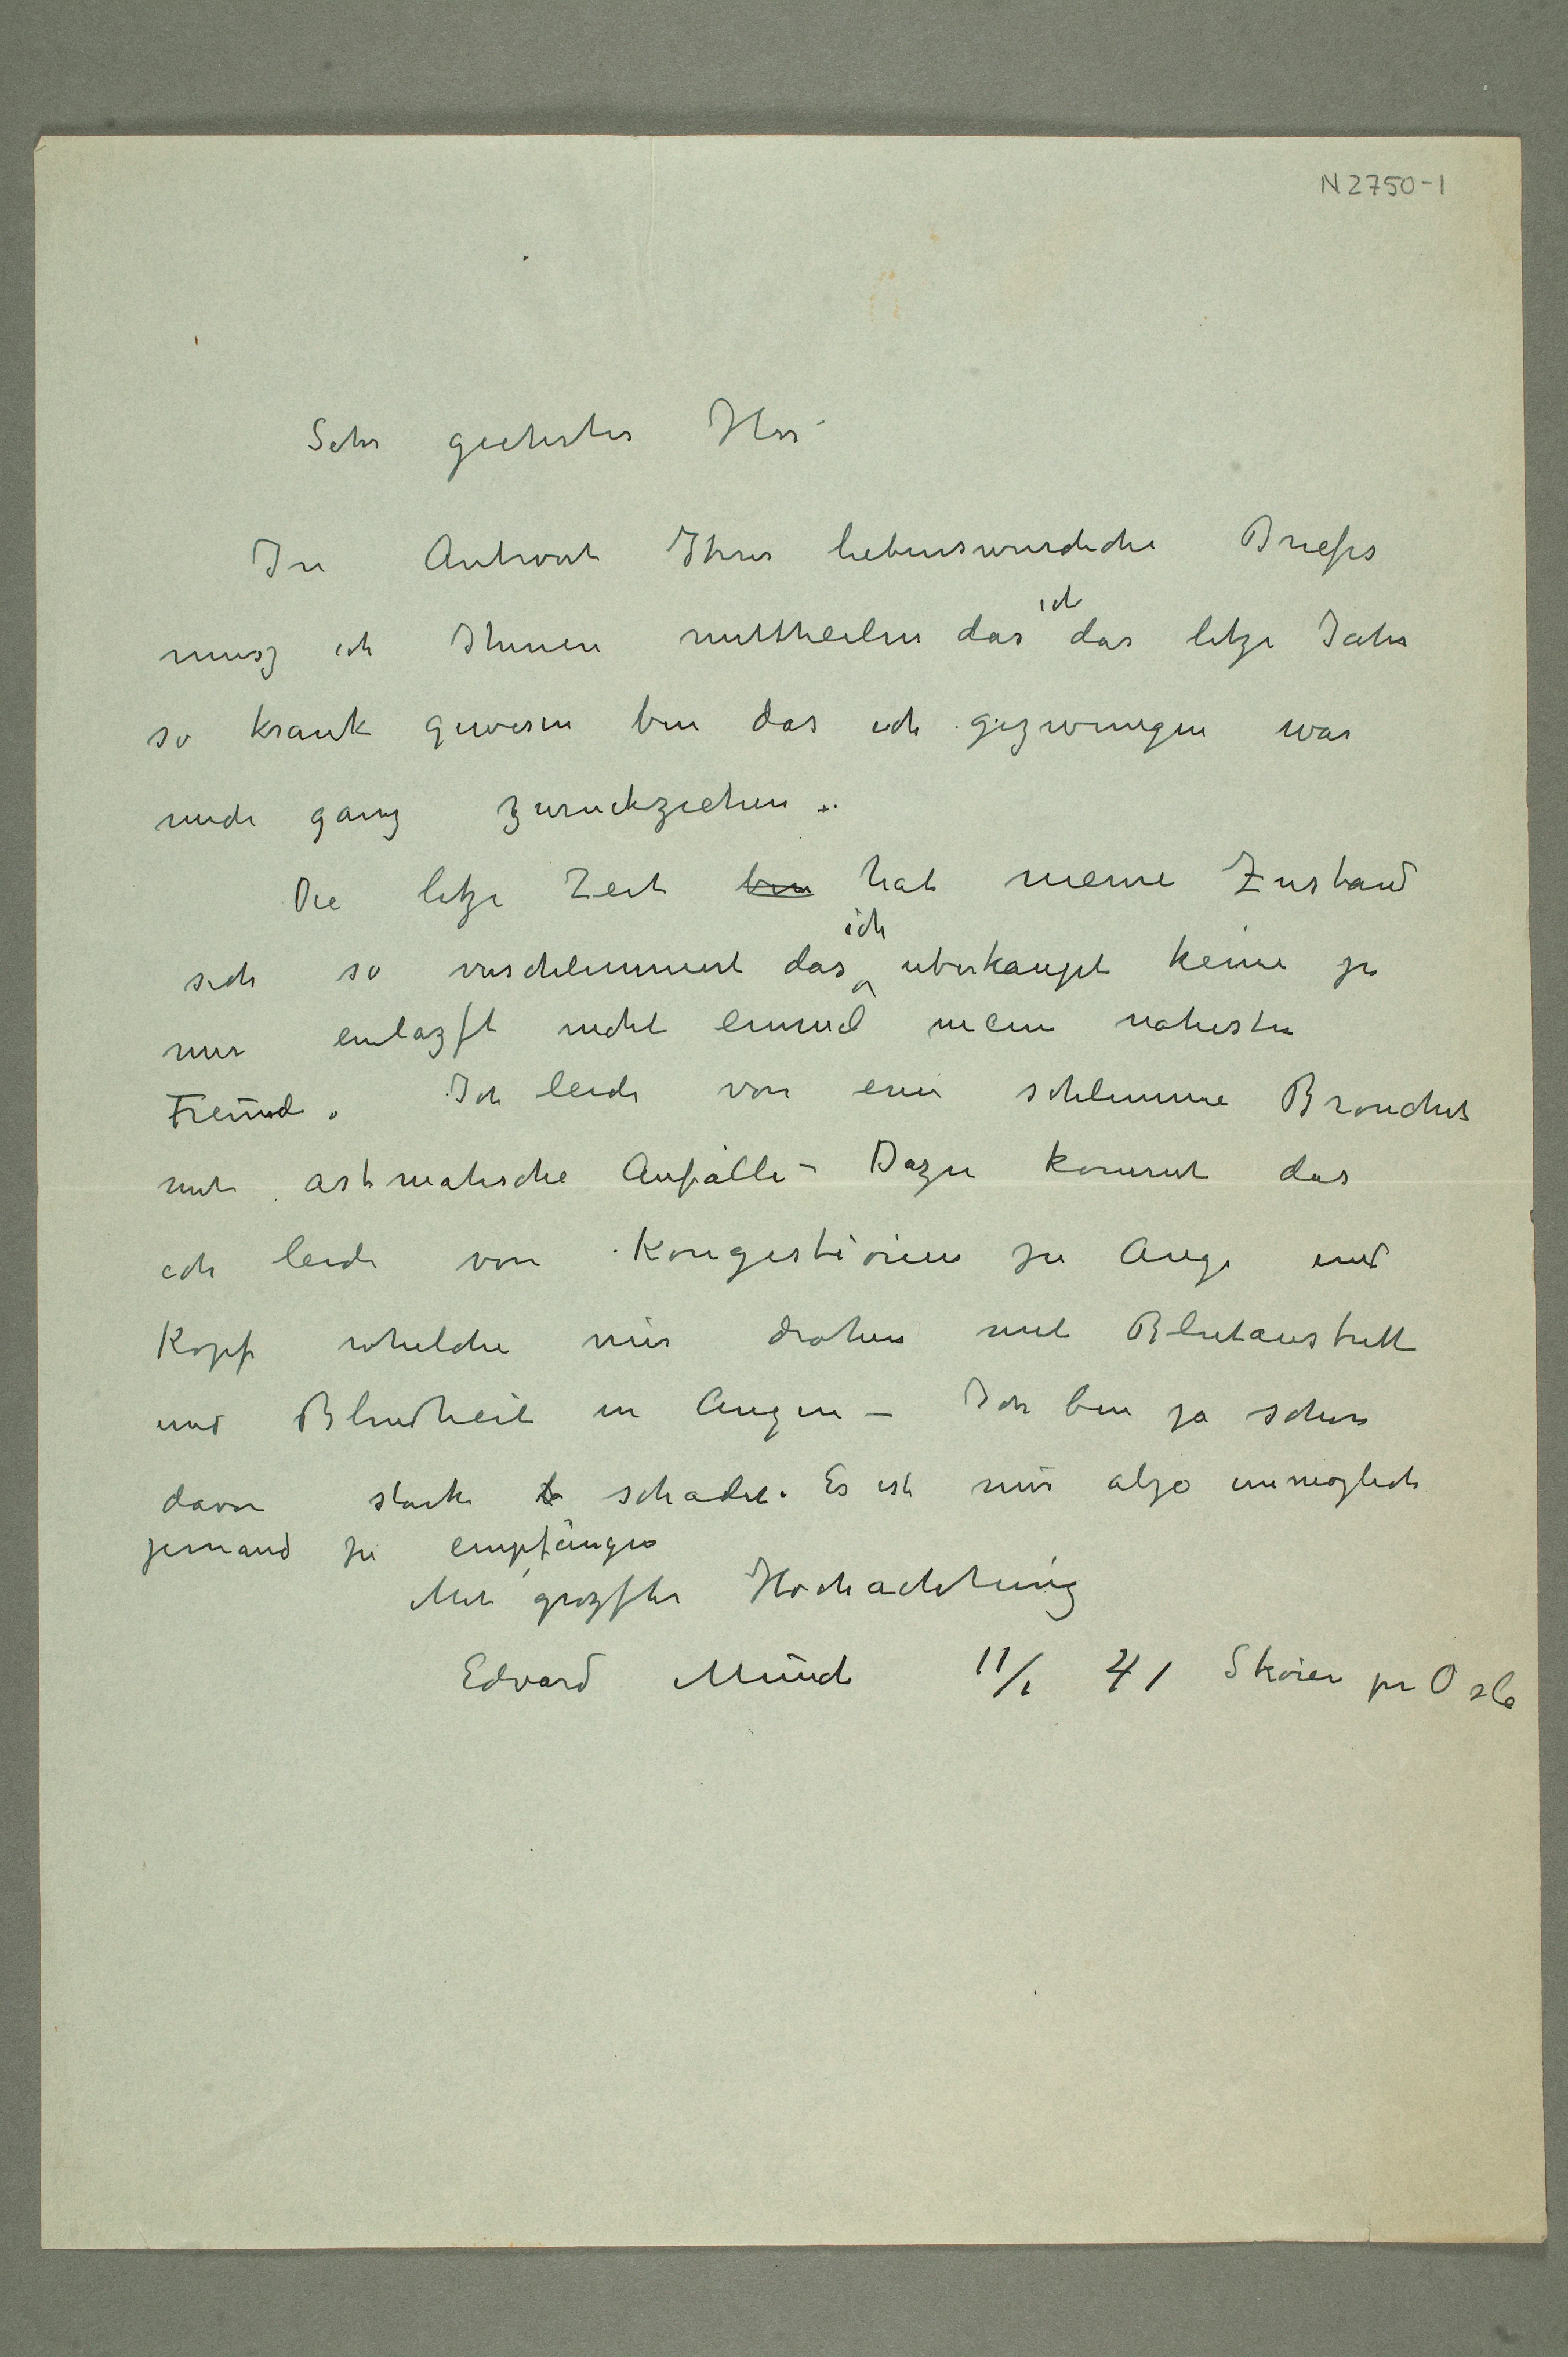 N 2750-1
Sehr geehrter Herr
In Antwort Ihres liebenswurdiche Briefes
musz ich Ihnen mittheilen das ich das letze Jahr
so krank gewesen bin das ich gezwungen war
mich ganz zuruckziehen.
Die letze Zeit bin hat meine Zustand
sich so verschlimmert das ich uberhaupt keine zu
mir einlazst nicht einmal meine nahesten
Freunde. Ich leide von eine schlimme Bronchit
mit astmatische Anfälle – Dazu kommt das
ich leide von Kongestionen zu Auge und
Kopf whelche mir drohen mit Blutaustritt
und Blindheit in Augen – Ich bin ja schon
davon stark b schadet. Es ist mir alzo unmöglich
jemand zu empfangen
Mit grözster Hochachtung
Edvard Munch 11/1 41 Skøien pr Oslo